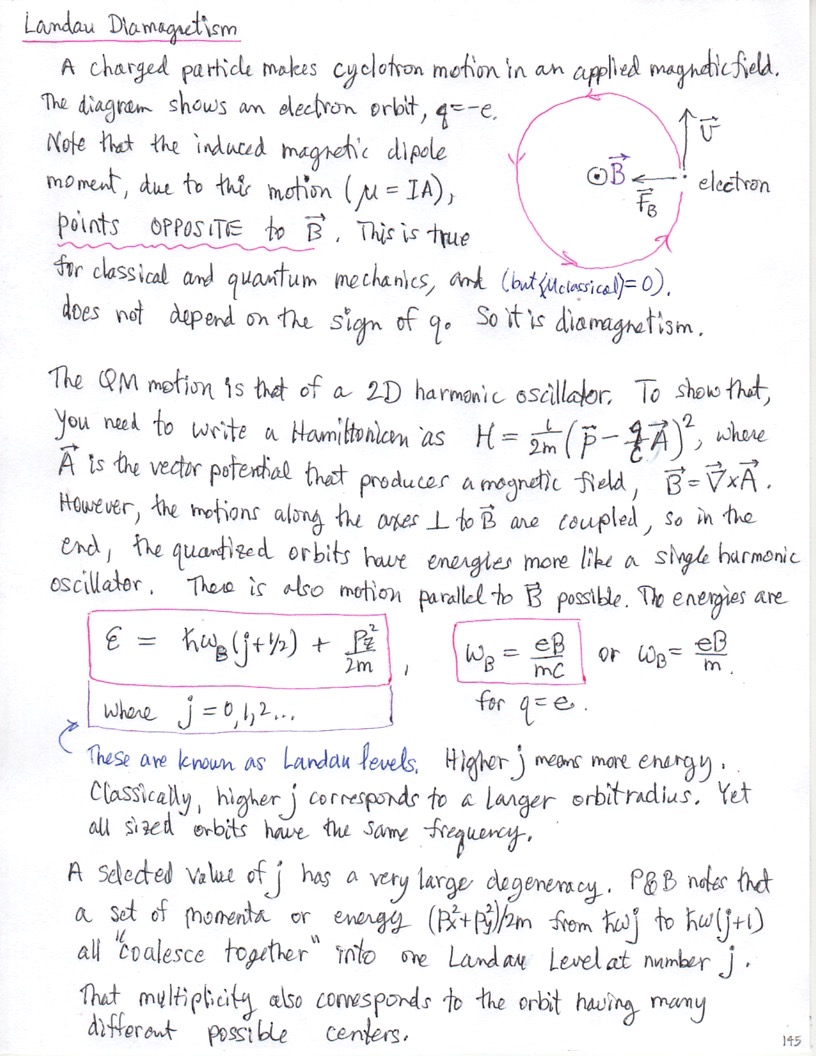 Landau Diamagnetism
A charged particle makes cyclotron motion in an applied magnetic field.
The diagram shows an electron orbit, q=-e.
Note that the induced magnetic dipole
moment, due to this motion (μ = IA),
points OPPOSITE to B⃗. This is true
for classical and quantum mechanics, and (but {μclassical}=0).
does not depend on the sign of q. So it is diamagnetism.
v⃗
⊙B⃗
F⃗_B
electron
The QM motion is that of a 2D harmonic oscillator. To show that,
you need to write a Hamiltonian as H = 1/2m (p⃗ - q/c A⃗)², where
A⃗ is the vector potential that produces a magnetic field, B⃗ = ∇⃗×A⃗.
However, the motions along the axes ⊥ to B⃗ are coupled, so in the
end, the quantized orbits have energies more like a single harmonic
oscillator. There is also motion parallel to B⃗ possible. The energies are
ε = ħω_B(j+1/2) + p_z²/2m , ω_B = eB/mc or ω_B = eB/m.
where j = 0,1,2... for q=e.
These are known as Landau levels. Higher j means more energy.
Classically, higher j corresponds to a larger orbit radius. Yet
all sized orbits have the same frequency.
A selected value of j has a very large degeneracy. P&B notes that
a set of momenta or energy (p_x²+p_y²)/2m from ħωj to ħω(j+1)
all "coalesce together" into one Landau Level at number j.
That multiplicity also corresponds to the orbit having many
different possible centers.
145